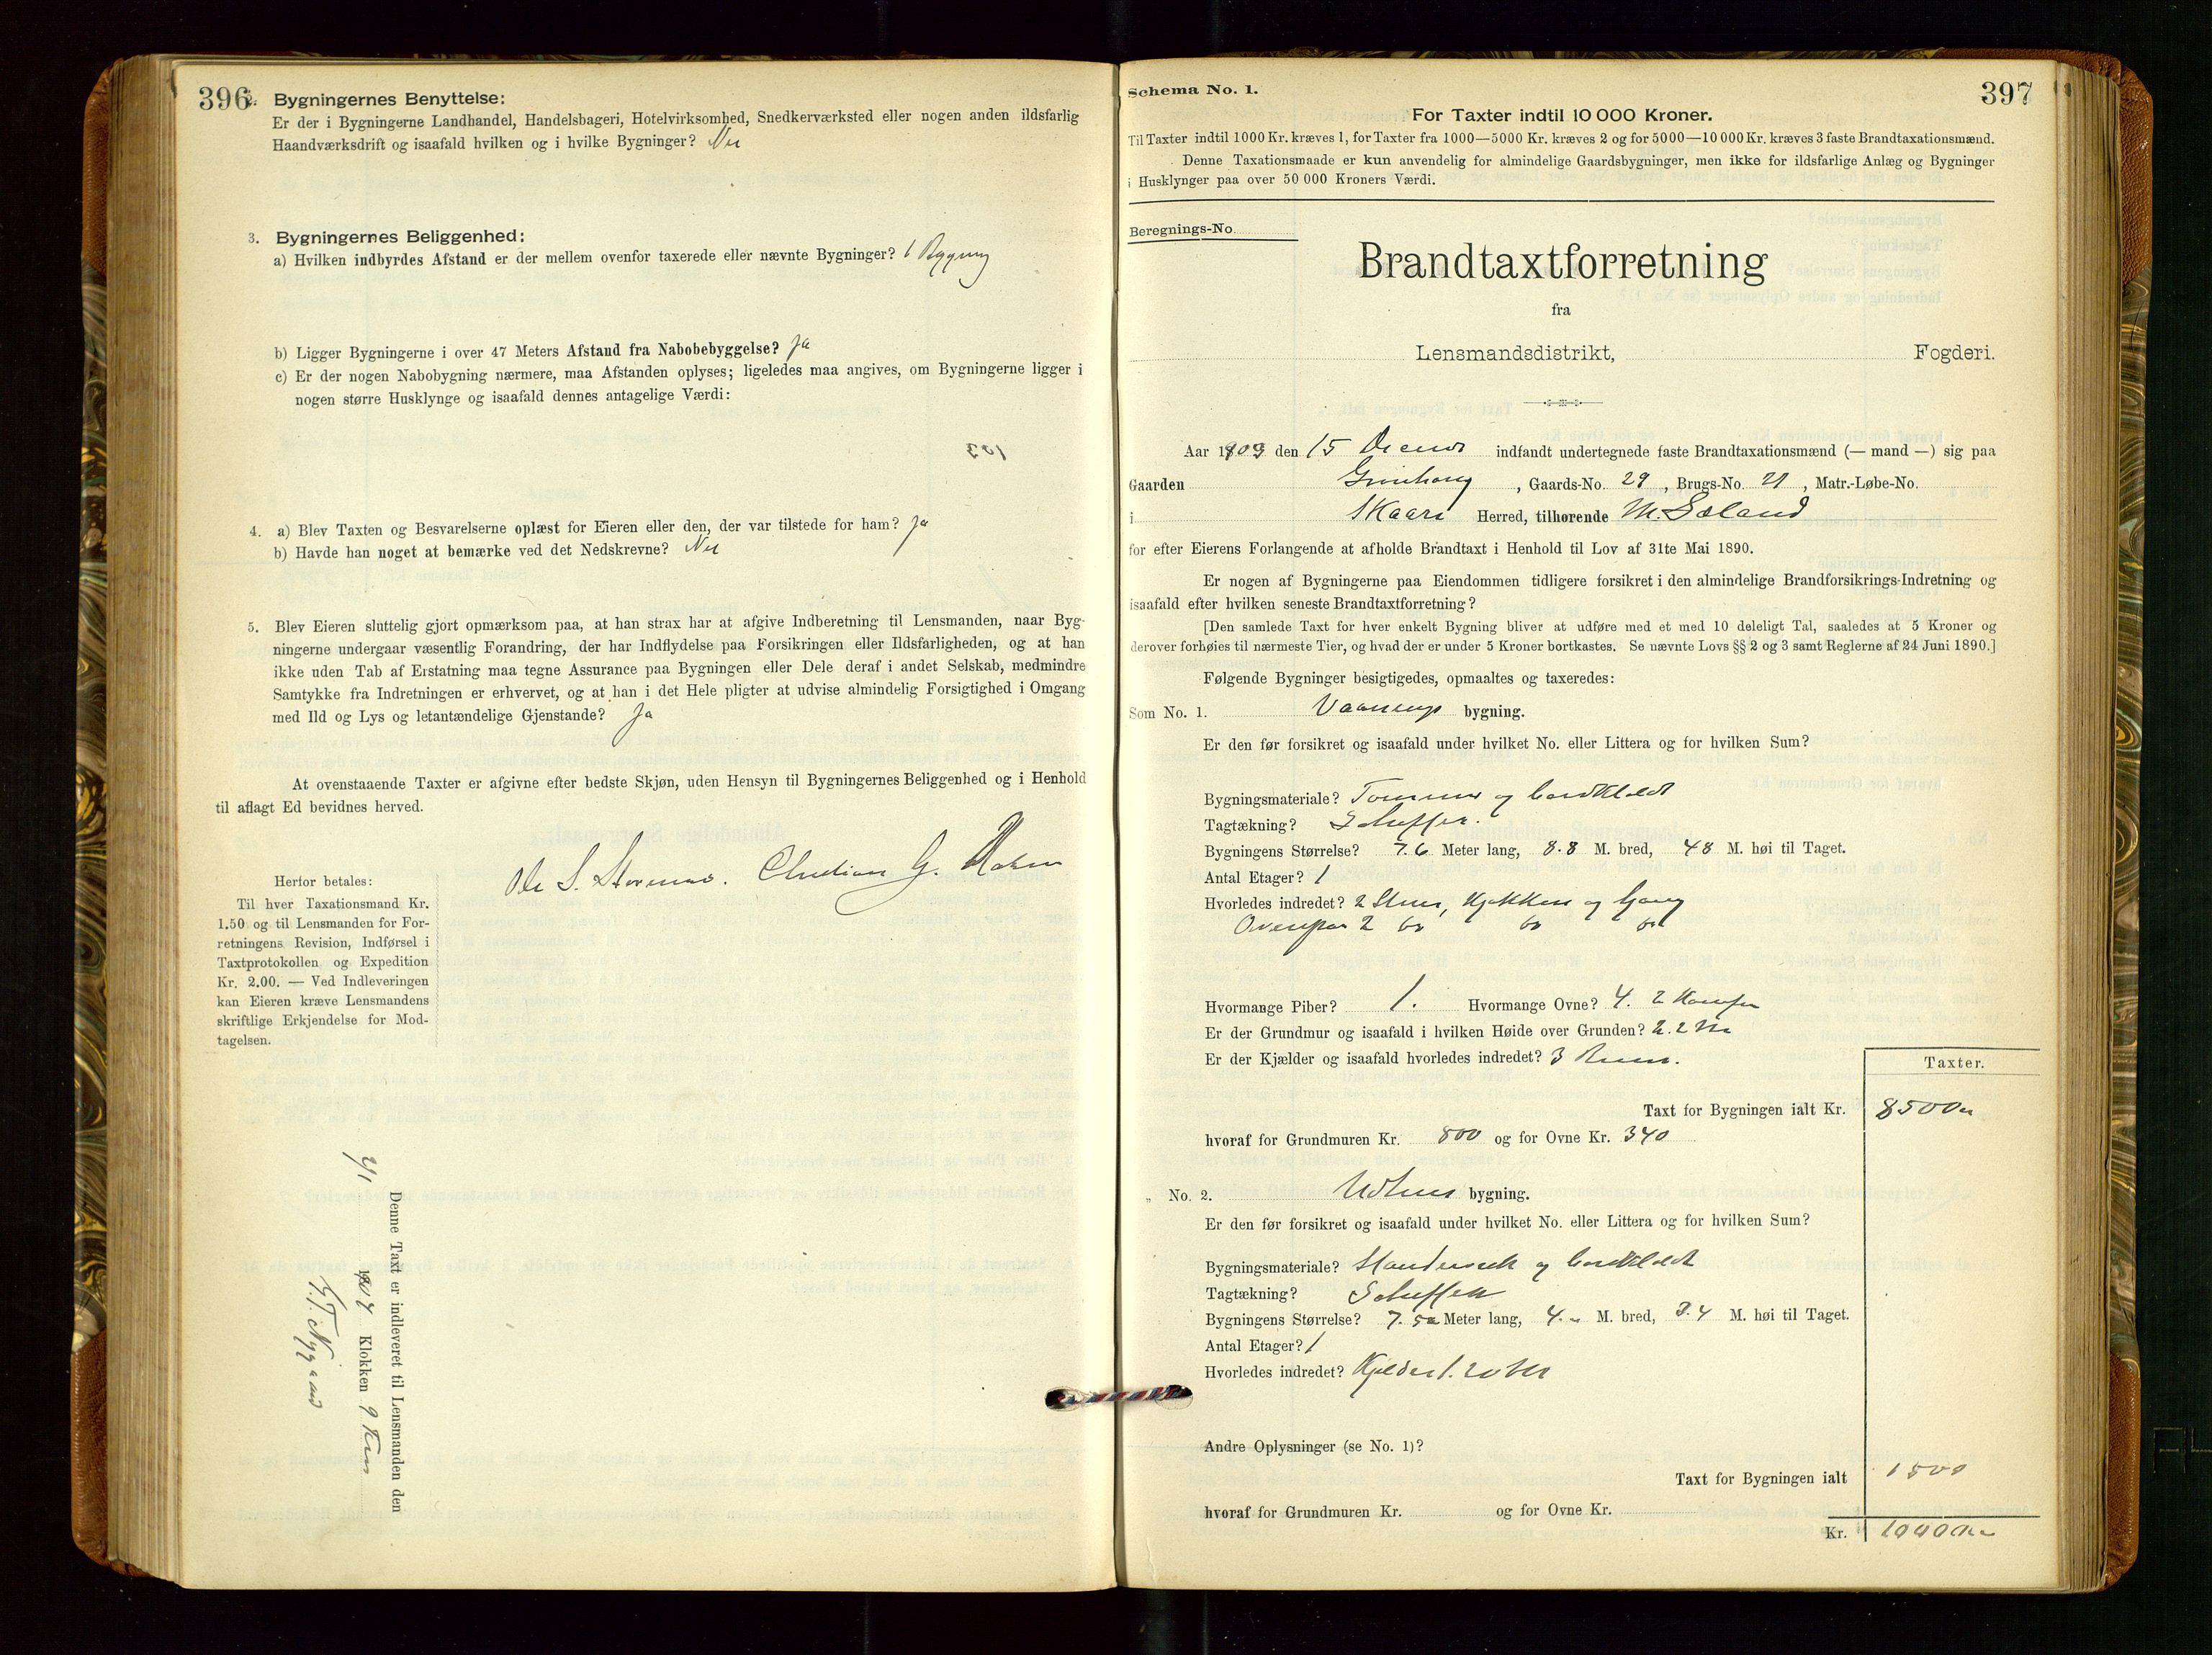 396
2. Bygningernes Benyttelse:
Er der i Bygningerne Landhandel, Handelsbageri, Hotelvirksomhed, Snedkerværksted eller nogen anden ildsfarlig
Haandværksdrift og isaafald hvilken og i hvilke Bygninger? Nei
3. Bygningernes Beliggenhed:
a) Hvilken indbyrdes Afstand er der mellem ovenfor taxerede eller nævnte Bygninger? 1 Bygning
b) Ligger Bygningerne i over 47 Meters Afstand fra Nabobebyggelse? Ja
c) Er der nogen Nabobygning nærmere, maa Afstanden oplyses; ligeledes maa angives, om Bygningerne ligger i
nogen større Husklynge og isaafald dennes antagelige Værdi:
4. a) Blev Taxten og Besvarelserne oplæst for Eieren eller den, der var tilstede for ham? Ja
b) Havde han noget at bemærke ved det Nedskrevne? Nei
5. Blev Eieren sluttelig gjort opmærksom paa, at han strax har at afgive Indberetning til Lensmanden, naar Byg-
ningerne undergaar væsentlig Forandring, der har Indflydelse paa Forsikringen eller Ildsfarligheden, og at han
ikke uden Tab af Erstatning maa tegne Assurance paa Bygningen eller Dele deraf i andet Selskab, medmindre
Samtykke fra Indretningen er erhvervet, og at han i det Hele pligter at udvise almindelig Forsigtighed i Omgang
med Ild og Lys og letantændelige Gjenstande? Ja
At ovenstaaende Taxter er afgivne efter bedste Skjøn, uden Hensyn til Bygningernes Beliggenhed og i Henhold
til aflagt Ed bevidnes herved.
Ole S. Christian G.
Herfor betales:
Til hver Taxationsmand Kr.
1.50 og til Lensmanden for For-
retningens Revision, Indførsel i
Taxtprotokollen og Expedition
Kr. 2.00. — Ved Indleveringen
kan Eieren kræve Lensmandens
skriftlige Erkjendelse for Mod-
tagelsen.
Denne Taxt er indleveret til Lensmanden den
2/1 1904 Klokken 9
Nygaard
Schema No. 1.
397
For Taxter indtil 10 000 Kroner.
Til Taxter indtil 1000 Kr. kræves 1, for Taxter fra 1000—5000 Kr. kræves 2 og for 5000—10 000 Kr. kræves 3 faste Brandtaxationsmænd.
Denne Taxationsmaade er kun anvendelig for almindelige Gaardsbygninger, men ikke for ildsfarlige Anlæg og Bygninger
i Husklynger paa over 50 000 Kroners Værdi.
Beregnings-No.
Brandtaxtforretning
fra
Lensmandsdistrikt, Fogderi.
Aar 1903 den 15 indfandt undertegnede faste Brandtaxationsmænd (— mand —) sig paa
Gaarden , Gaards-No. 29, Brugs-No. 21, Matr.-Løbe-No.
i Skaare Herred, tilhørende M. Sæland
for efter Eierens Forlangende at afholde Brandtaxt i Henhold til Lov af 31te Mai 1890.
Er nogen af Bygningerne paa Eiendommen tidligere forsikret i den almindelige Brandforsikrings-Indretning og
isaafald efter hvilken seneste Brandtaxtforretning?
[Den samlede Taxt for hver enkelt Bygning bliver at udføre med et med 10 deleligt Tal, saaledes at 5 Kroner og
derover forhøies til nærmeste Tier, og hvad der er under 5 Kroner bortkastes. Se nævnte Lovs §§ 2 og 3 samt Reglerne af 24 Juni 1890.]
Følgende Bygninger besigtigedes, opmaaltes og taxeredes:
Som No. 1. Vaanings bygning.
Er den før forsikret og isaafald under hvilket No. eller Littera og for hvilken Sum?
Bygningsmateriale? Tømmer og bordklædt
Tagtækning? Skiffer.
Bygningens Størrelse? 7.6 Meter lang, 8.8 M. bred, 4.8 M. høi til Taget.
Antal Etager? 1
Hvorledes indredet? 2 Stuer, Kjøkken og Gang
Ovenpaa 2 do do do
Hvormange Piber? 1. Hvormange Ovne? 4. 2 Komfur
Er der Grundmur og isaafald i hvilken Høide over Grunden? 2.2 M
Er der Kjælder og isaafald hvorledes indredet? 3 Rum.
Taxter.
Taxt for Bygningen ialt Kr. 8500
hvoraf for Grundmuren Kr. 800 og for Ovne Kr. 340
„ No. 2. Udhus bygning.
Er den før forsikret og isaafald under hvilket No. eller Littera og for hvilken Sum?
Bygningsmateriale? og bordklædt
Tagtækning? Skiffer
Bygningens Størrelse? 7.5 Meter lang, 4. M. bred, 3.4 M. høi til Taget.
Antal Etager? 1
Hvorledes indredet? Kjelder
Andre Oplysninger (se No. 1)?
Taxt for Bygningen ialt 1500
hvoraf for Grundmuren Kr. og for Ovne Kr.
Kr.